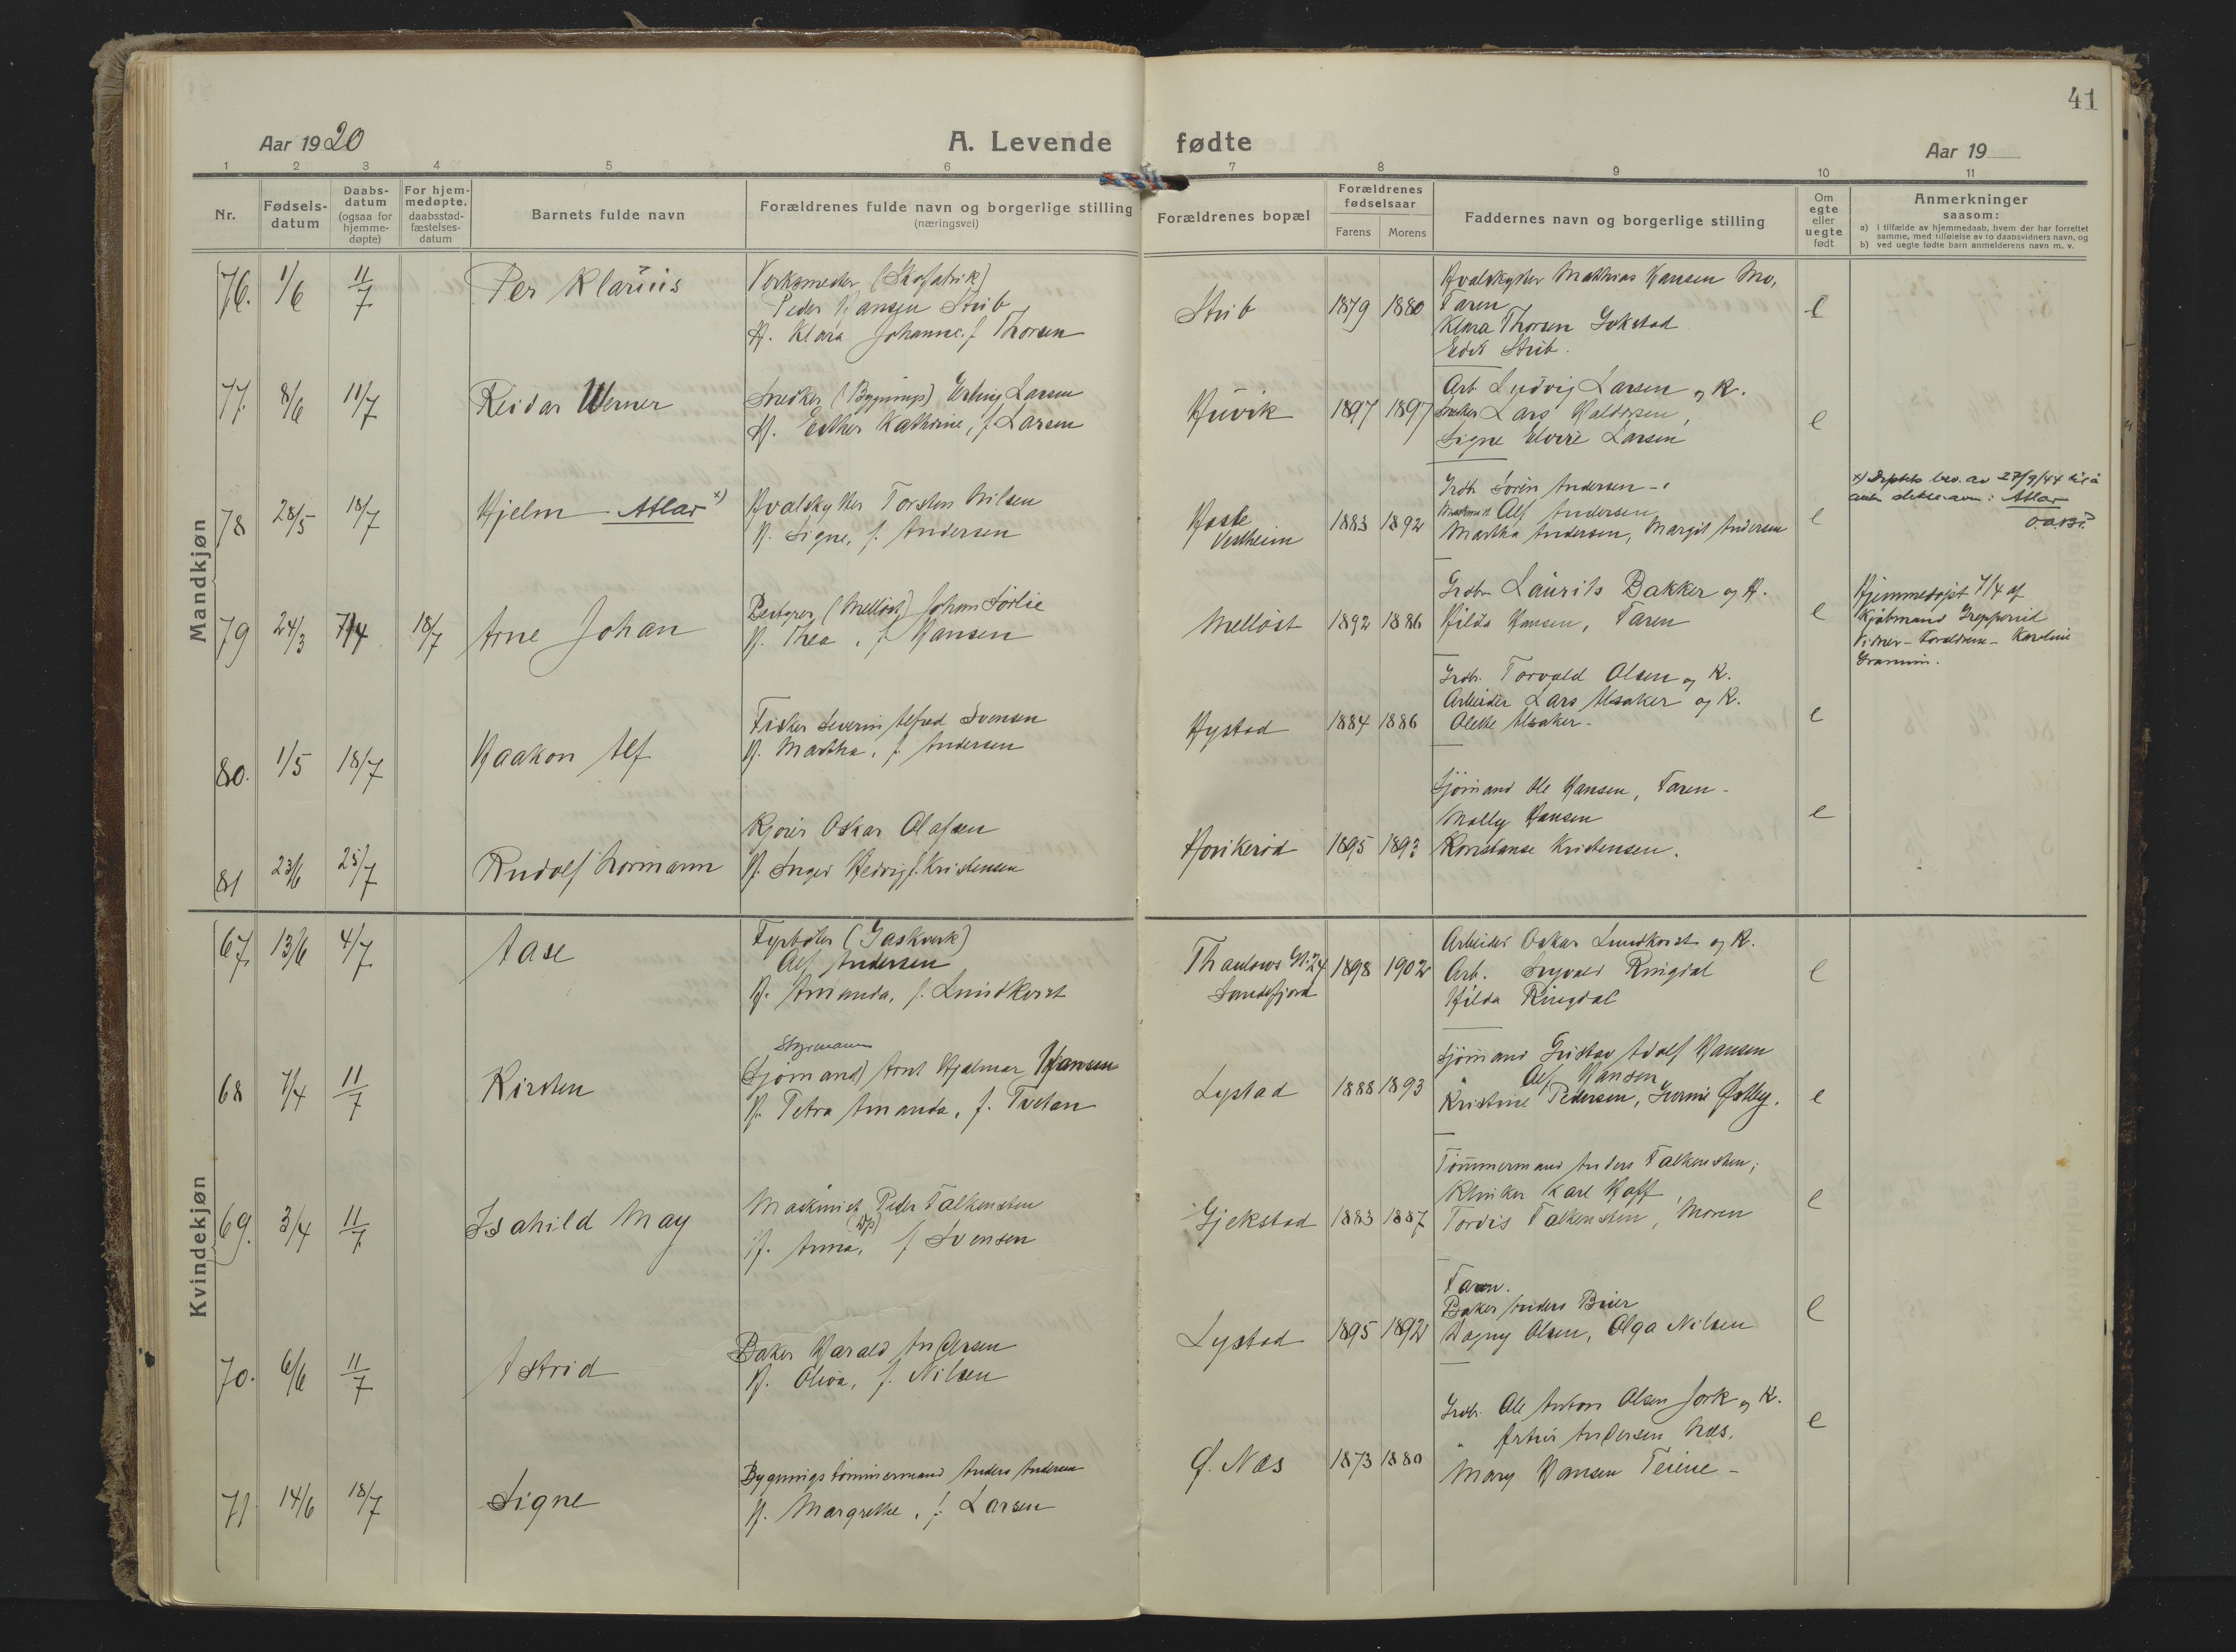 41
Aar 1920
A. Levende fødte
Aar 19
1 2 3 4 5 6 7 8 9 10 11
Nr.
Fødsels-
datum
Daabs-
datum
(ogsaa for
hjemme-
døpte)
For hjem-
medøpte.
daabsstad-
fæstelses-
datum
Barnets fulde navn
Forældrenes fulde navn og borgerlige stilling
(næringsvei)
Forældrenes bopæl
Forældrenes
fødselsaar
Farens Morens
Faddernes navn og borgerlige stilling
Om
egte
eller
uegte
født
Anmerkninger
saasom:
a) i tilfælde av hjemmedaab, hvem der har forrettet
samme, med tilføielse av to daabsvidners navn, og
b) ved uegte fødte barn anmelderens navn m. v.
Mandkjøn
76. 1/6 11/7 Per Klarius
Verksmester (Skofabrik)
Peder Hansen Strib
H. Klara Johanne f. Thorsen
Strib 1879 1880
Hvalskytter Mathias Hansen Mo,
Faren
Klara Thorsen Gokstad
Strib.
e
77. 8/6 11/7 Reidar Werner
Snedker (Bygnings) Erling Larsen
H. Esther Kathrine, f. Larsen
Huvik 1897 1897
Arb. Ludvig Larsen og K.
Snedker Lars Haldorsen,
Signe Elvire Larsen
e
78 28/5 18/7 Hjelm Atlar x)
Hvalskytter Torsten Nilsen
H. Signe, f. Andersen
Vestheim 1883 1892
Grdbr. Sören Andersen
Maskinist Alf Andersen
Martha Andersen, Margit Andersen
e
x) Deptets bev. av 27/9/44 til å
: Atlar
79 24/3 7/4 18/7 Arne Johan
Bestyrer (Melløst) Johan Sørlie
H. Thea, f. Hansen
Melløst 1892 1886
Grdbr. Laurits Bakker og H.
Hilda Hansen, Faren
e
Hjemmedøpt 7/4 af
Kjøbmand
Vidner - Forældrene - Karoline
80. 1/5 18/7 Haakon Alf
Fisker Severin Alfred Svensen
H. Martha, f. Andersen
Hystad 1884 1886
Grdbr. Torvald Olsen og K.
Arbeider Lars Aasaker og K.
e
81 23/6 25/7 Rudolf Normann
Kjører Oskar Olafsen
H. Inger Hedvig f. Kristensen
Hovikerød 1895 1893
Sjømand Ole Hansen, Faren -
Molly Hansen
Konstanse Kristensen.
e
Kvindekjøn
67. 13/6 4/7 Aase
Fyrbøter (Gaskverk)
Alf Andersen
H. Amanda, f. Lundkvist
Thaulows Gt. 24
Sandefjord 1898 1902
Arbeider Oskar Lundkvist og K.
Arb. Sigvald Ringdal
Hilda Ringdal
e
68 7/4 11/7 Kirsten
Styrmann
(Sjømand) Arnt Hjalmar Hansen
H. Petra Amanda, f. Tvetan
Lystad 1888 1893
Sjømand Gustav Adolf Hansen
" Alf Hansen
Kristine Pedersen, Gunnie Østby.
e
69. 3/4 11/7 Isahild May
Maskinist Peder Falkensten
H. Anna, f. Svensen
Gjekstad 1883 1887
Tømmermand Anders Falkensten,
Klinker Karl Hoff
Tordis Falkensten, Moren
e
70. 6/6 11/7 Astrid
Baker Harald Andersen
H. Oliva, f. Nilsen
Lystad 1895 1892
Faren.
Baker Anders Bruer
Dagny Olsen, Olga Nilsen
e
71 14/6 18/7 Signe
Bygningstømmermand Anders Andersen
H. Margrethe, f. Larsen
Ø. Næs 1873 1880
Grdbr. Ole Anton Olsen Jork og K.
" Artur Andersen Næs.
Mary Hansen Teiene -
e